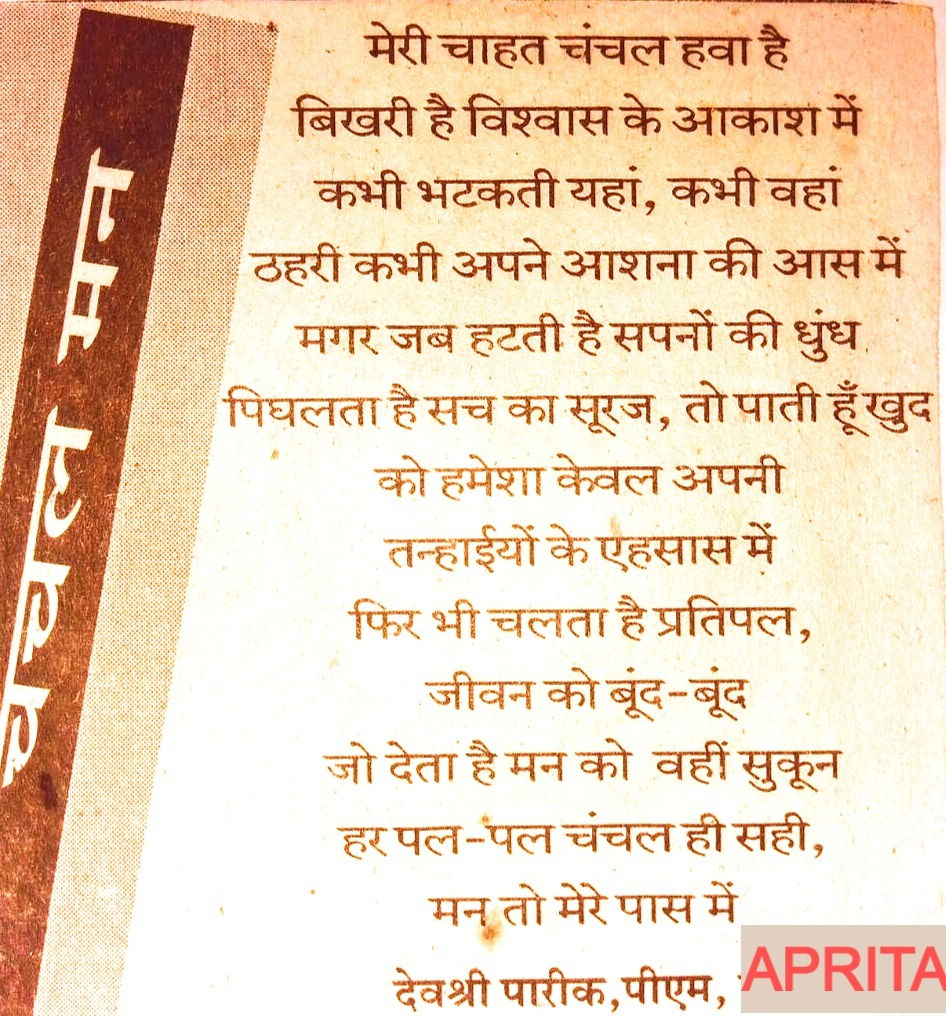 चंचल मन
मेरी चाहत चंचल हवा है
बिखरी है विश्वास के आकाश में
कभी भटकती यहां, कभी वहां
ठहरी कभी अपने आशना की आस में
मगर जब हटती है सपनों की धुंध
पिघलता है सच का सूरज, तो पाती हूँ खुद
को हमेशा केवल अपनी
तन्हाईयों के एहसास में
फिर भी चलता है प्रतिपल,
जीवन को बूंद-बूंद
जो देता है मन को वहीं सुकून
हर पल-पल चंचल ही सही,
मन तो मेरे पास में
देवश्री पारीक,पीएम,
APRITA